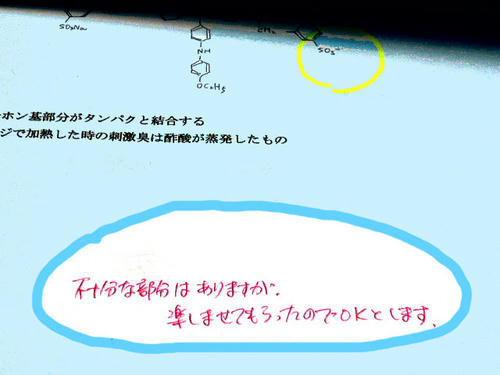 SO₃Na
NH
OC₂H₅
SO₃⁻
ホン基部分がタンパクと結合する
ジで加熱した時の刺激臭は酢酸が蒸発したもの
不十分な部分はありますが、
楽しませてもらったのでOKとします。